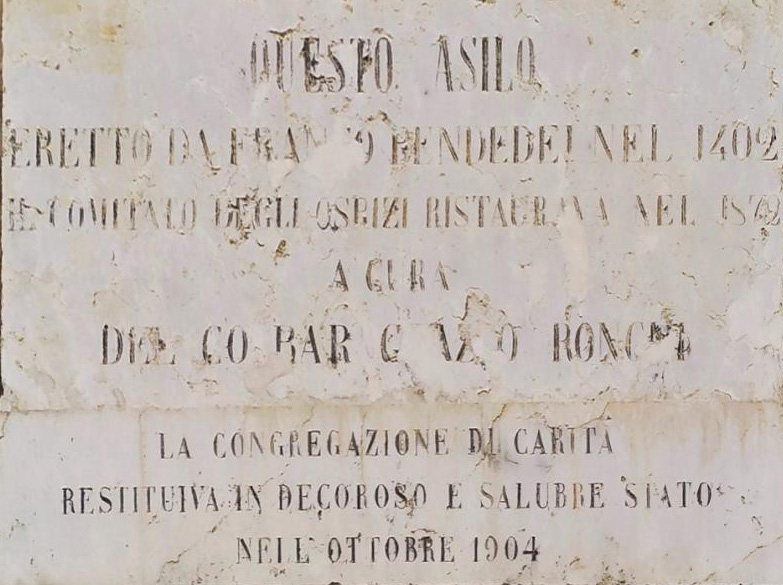 QUESTO ASILO
ERETTO DA BENDEDEI NEL 1402
IL COMITATO DEGLI OSPIZI RISTAURAVA NEL
A CURA
DEL CO BAR
LA CONGREGAZIONE DI CARITÀ
RESTITUIVA IN DECOROSO E SALUBRE STATO
NELL'OTTOBRE 1904